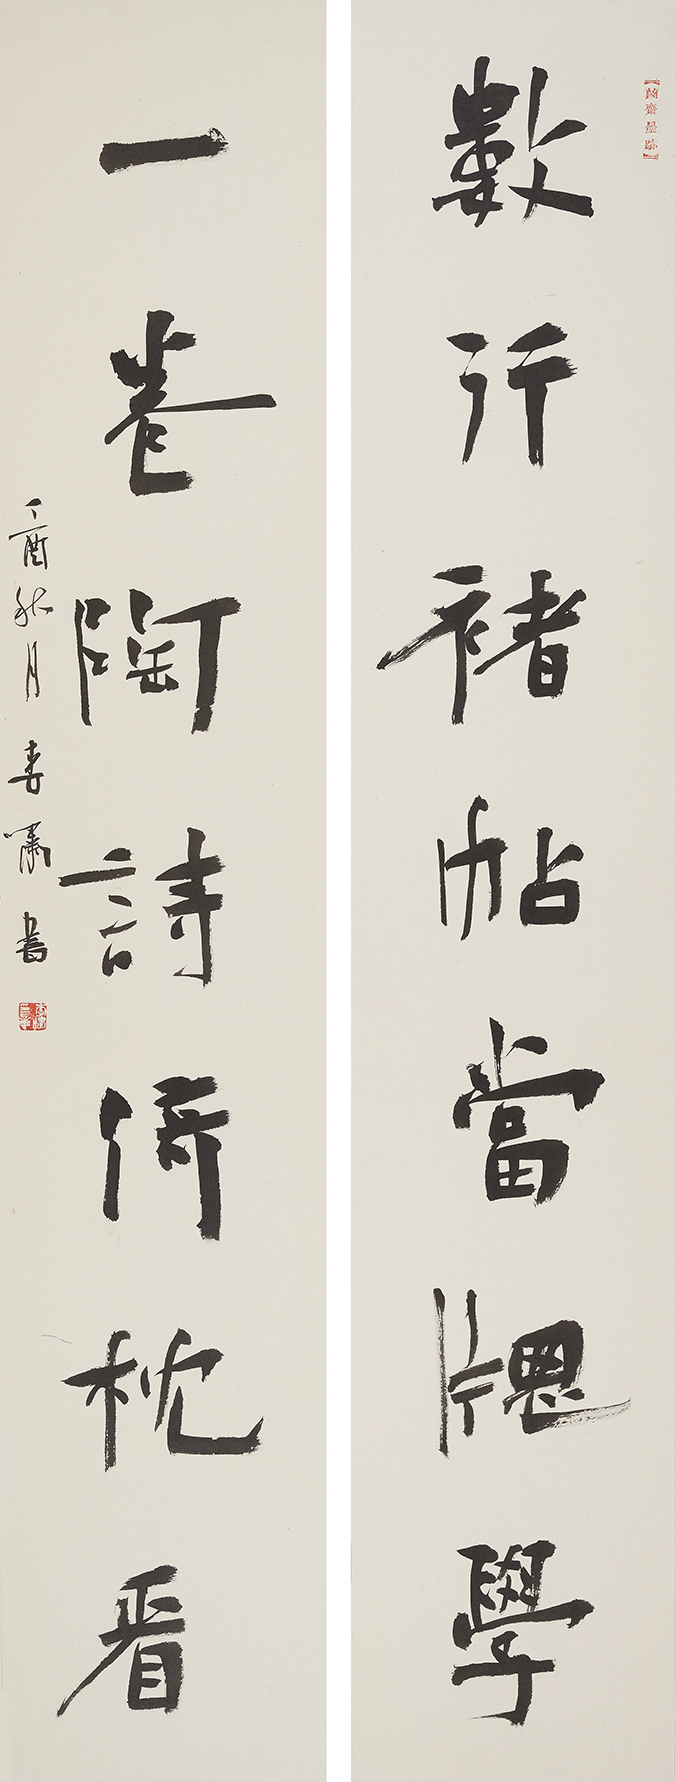 數行褚帖當牕學
一卷陶詩倚枕看
丁酉秋月李嘯書